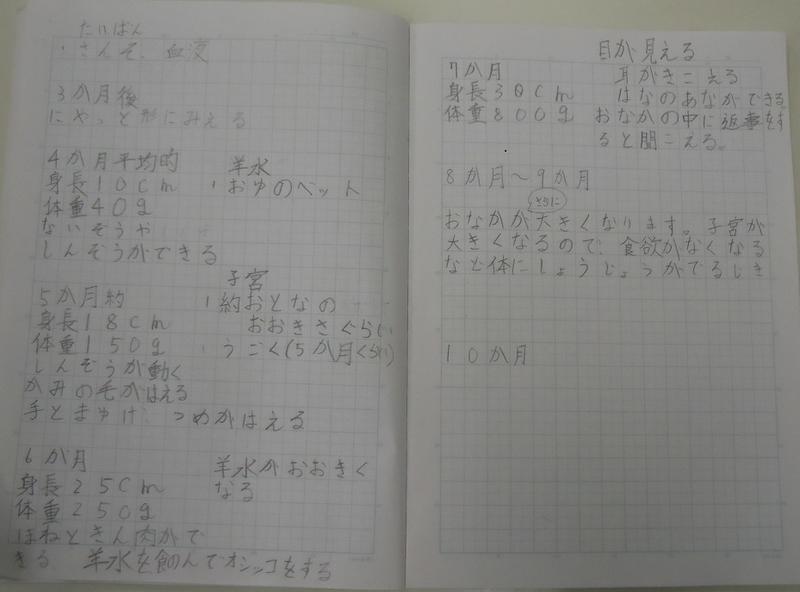 たいばん
・さんそ、血液
3か月後
にやっと形にみえる
4か月平均的
身長10cm
体重40g
ないぞうや
しんぞうができる
羊水
・おゆのベット
5か月約
身長18cm
体重150g
しんぞうが動く
かみの毛がはえる
手とまゆげ つめがはえる
子宮
・約おとなの
おおきさぐらい
・うごく(5か月くらい)
6か月
身長25cm
体重250g
ほねときん肉がで
きる 羊水を飲んでオシッコをする
羊水がおおきく
なる
7か月
身長30cm
体重800g
目が見える
耳がきこえる
はなのあなができる。
おなかの中に返事をす
ると聞こえる。
8か月〜9か月
さらに
おなかが大きくなります。子宮が
大きくなるので、食欲がなくなる
など体にしょうじょうがでるじき
10か月